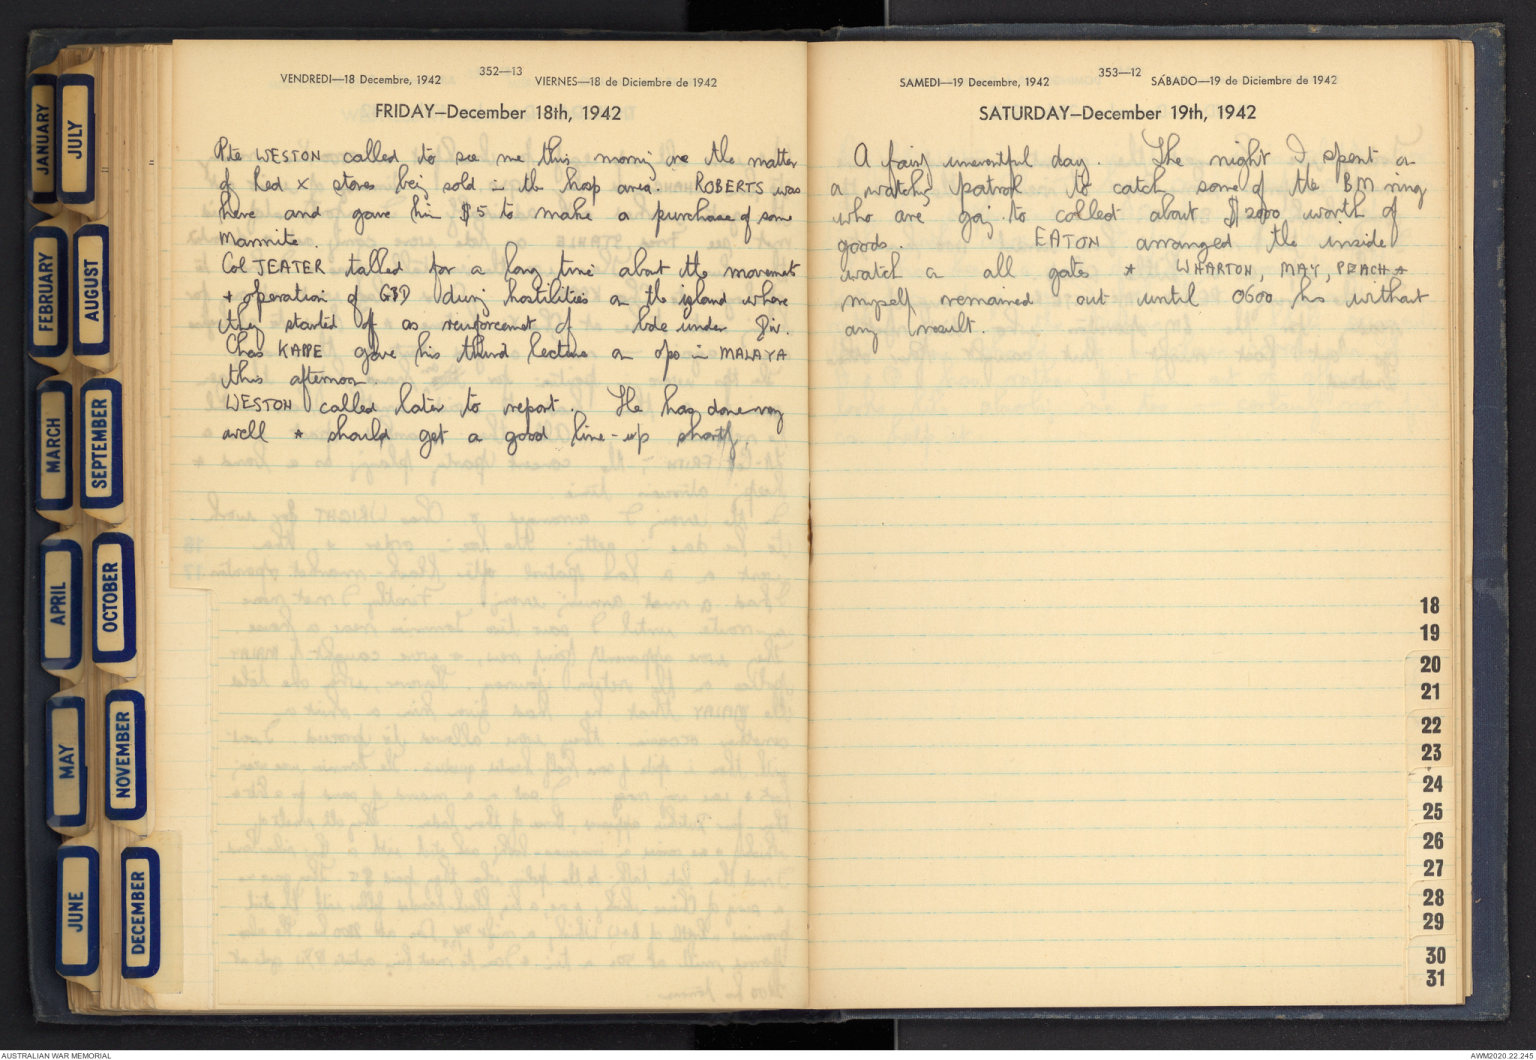 JANUARY
JULY
FEBRUARY
AUGUST
MARCH
SEPTEMBER
APRIL
OCTOBER
MAY
NOVEMBER
JUNE
DECEMBER
352—13
VENDREDI—18 Decembre, 1942
VIERNES—18 de Diciembre de 1942
FRIDAY—December 18th, 1942
Pte WESTON called to see me this morning re the matter
of Red X stores being sold in the hosp area. ROBERTS was
here and gave him $5 to make a purchase of some
Marmite.
Col JEATER talked for a long time about the movement
+ operation of GBD during hostilities on the island where
they started off as reinforcement of bde under Div.
Chas KAPPE gave his third lecture on ops in MALAYA
this afternoon.
WESTON called later to report. He has done very
well + should get a good line-up shortly
353—12
SAMEDI—19 Decembre, 1942
SÁBADO—19 de Diciembre de 1942
SATURDAY—December 19th, 1942
A fairly uneventful day. The night I spent on
a watching patrol to catch some of the BM ring
who are going to collect about $2000 worth of
goods. EATON arranged the inside
watch on all gates + WHARTON, MAY, PEACH +
myself remained out until 0600 hrs without
any result.
18
19
20
21
22
23
24
25
26
27
28
29
30
31
AUSTRALIAN WAR MEMORIAL
AWM2020.22.245